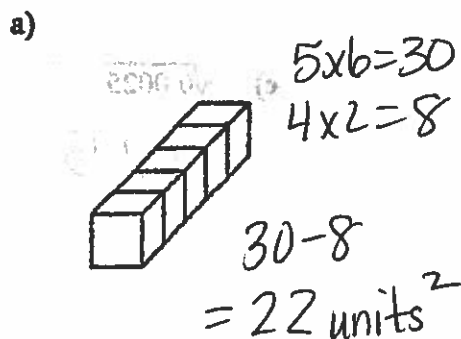 a)
5x6=30
4x2=8
30-8
= 22 units²